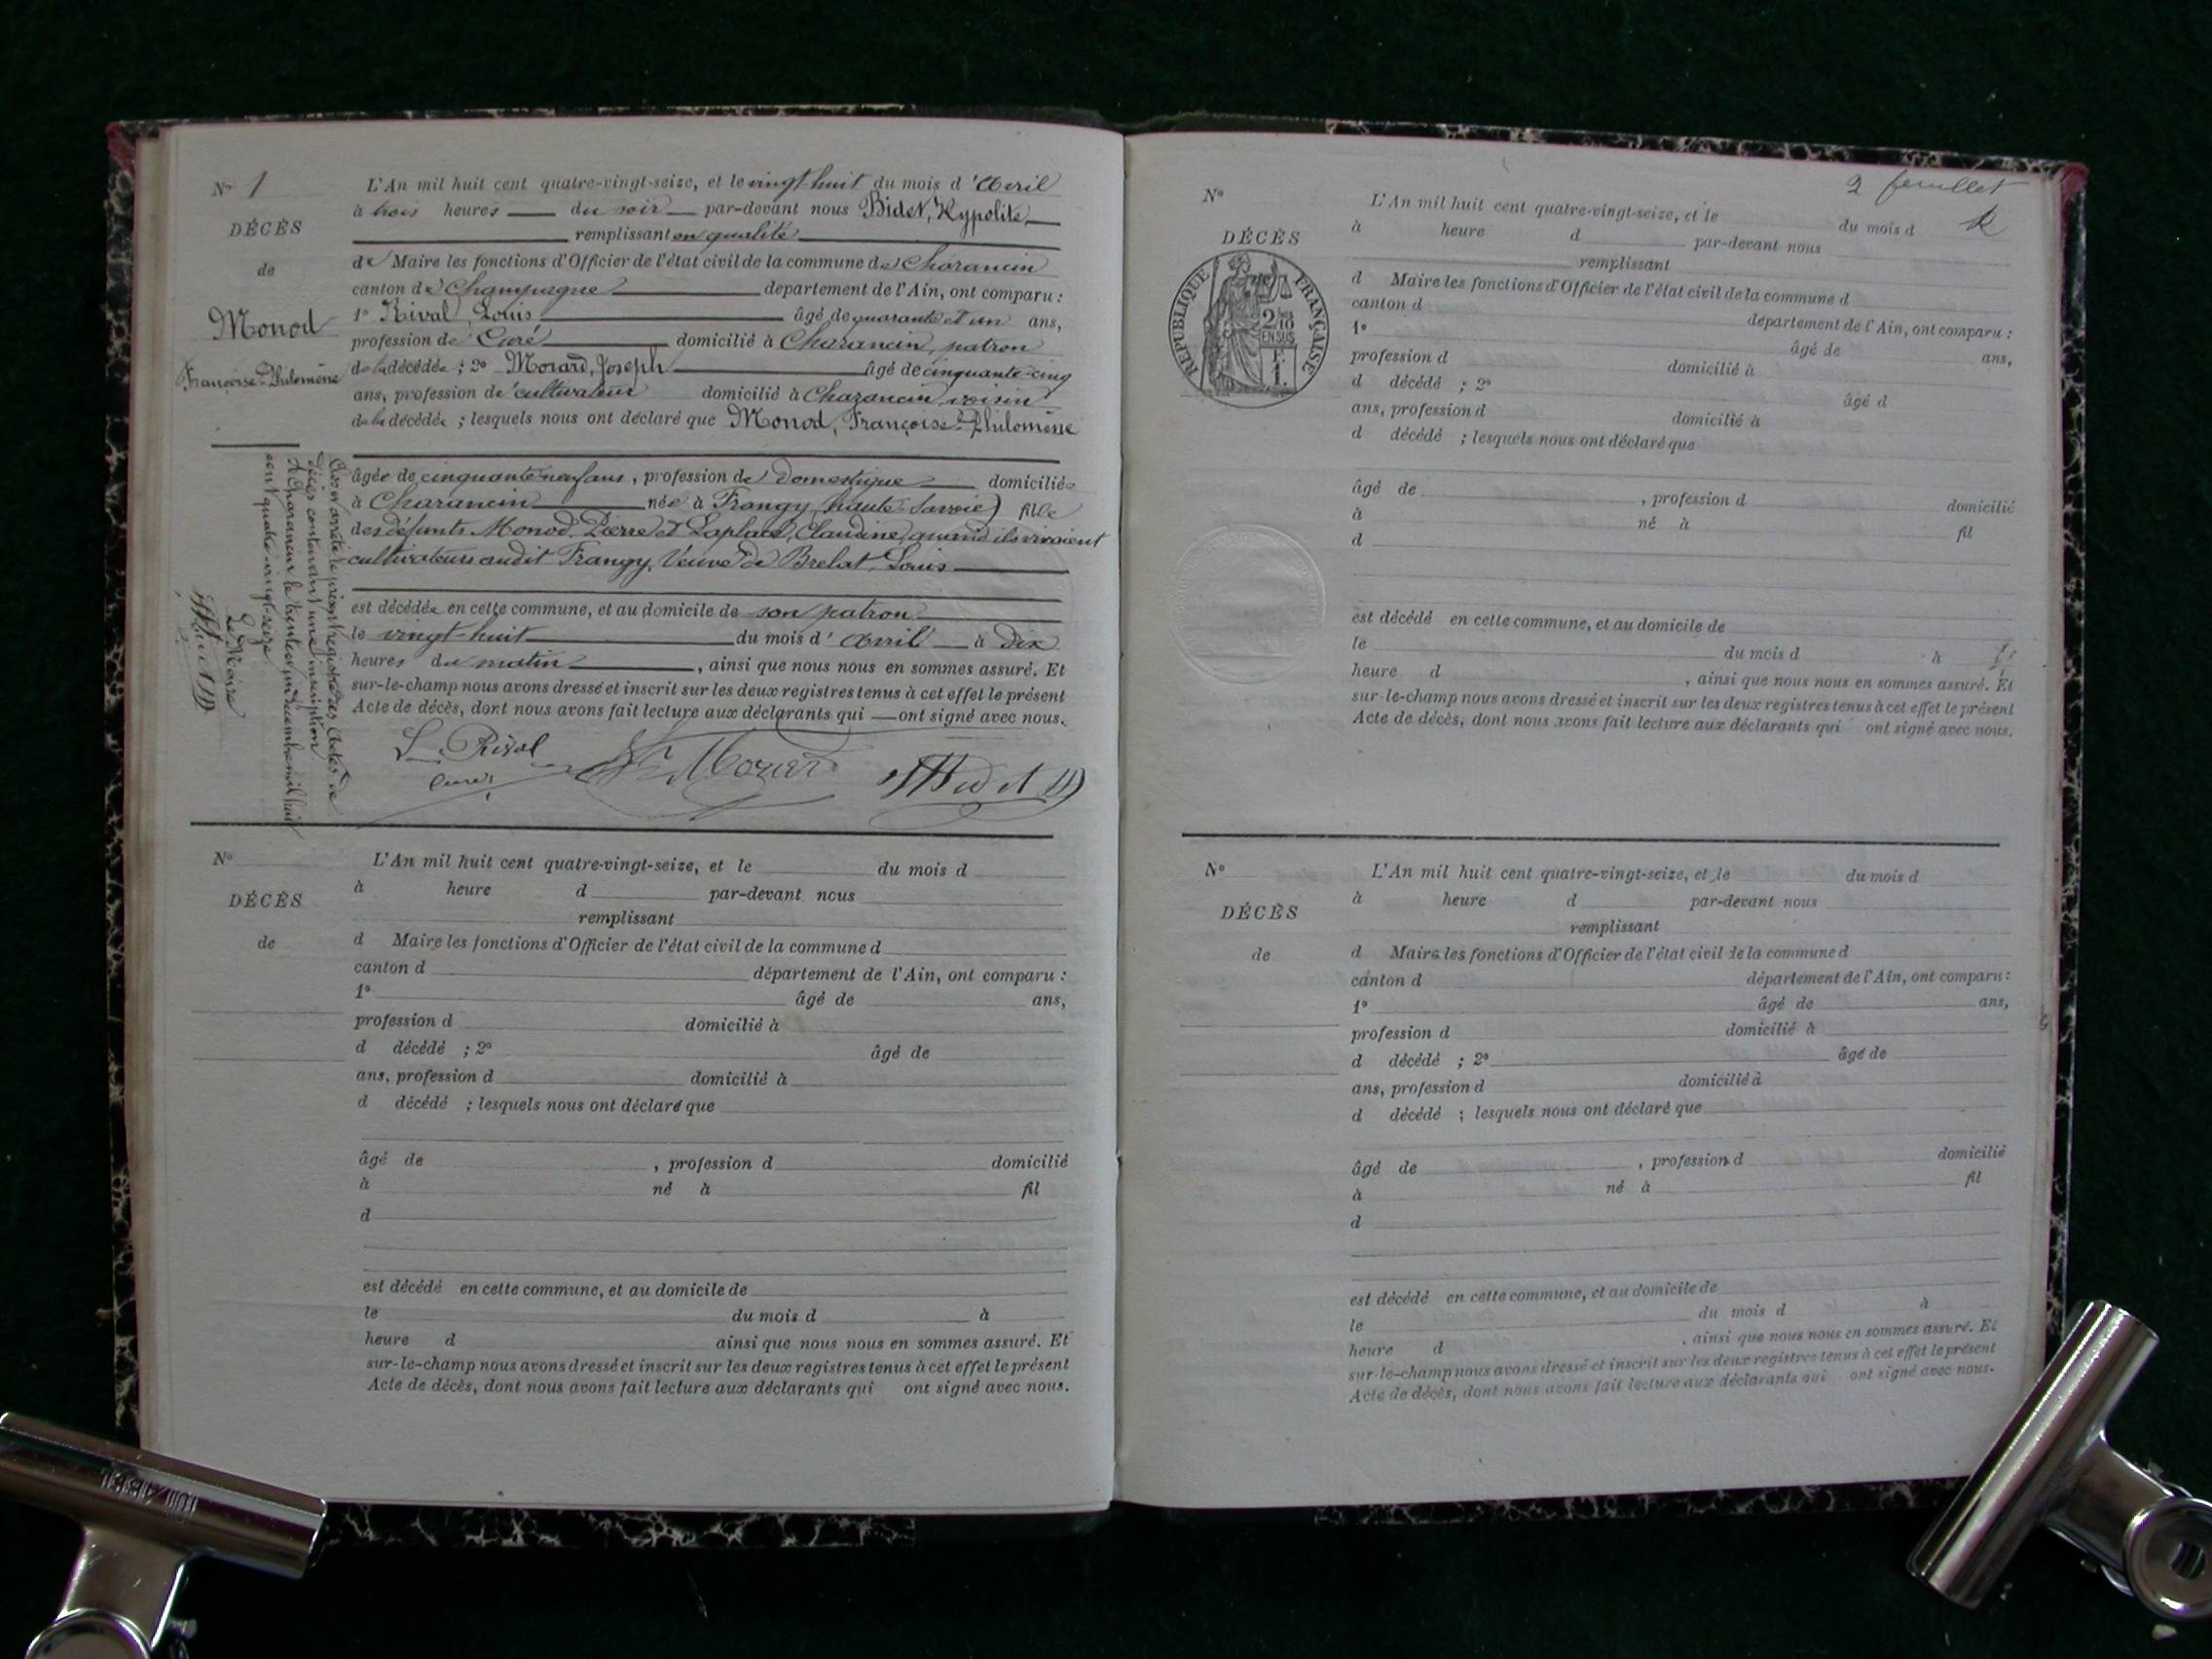 N° 1
DÉCÈS
de
Monod
Françoise-Philomène
L'An mil huit cent quatre-vingt-seize, et le vingt-huit du mois d'Avril
à trois heures du soir par-devant nous Bidet, Hypolite,
remplissant en qualité
de Maire les fonctions d'Officier de l'état civil de la commune de Charancin
canton de Champagne département de l'Ain, ont comparu :
1° Rival, Louis âgé de quarante et un ans,
profession de Curé domicilié à Charancin, patron
de la décédée ; 2° Morard, Joseph âgé de cinquante-cinq
ans, profession de cultivateur domicilié à Charancin, voisin
de la décédée ; lesquels nous ont déclaré que Monod, Françoise-Philomène
âgée de cinquante-neuf ans, profession de domestique domiciliée
à Charancin née à Frangy (haute-Savoie) fille
des défunts Monod, Pierre et Laplace, Claudine, quand ils vivaient
cultivateurs audit Frangy, Veuve de Brelat, Louis
est décédée en cette commune, et au domicile de son patron
le vingt-huit du mois d'Avril à Dix
heures du matin, ainsi que nous nous en sommes assuré. Et
sur-le-champ nous avons dressé et inscrit sur les deux registres tenus à cet effet le présent
Acte de décès, dont nous avons fait lecture aux déclarants qui ont signé avec nous.
L. Rival
curé
Morard
Bidet H
Clos et arrêté le présent registre des Actes de
décès contenant une inscription
A Charancin le trente et un décembre mil huit
cent quatre-vingt-seize
Le Maire
Bidet H
N°
DÉCÈS
de
L'An mil huit cent quatre-vingt-seize, et le du mois d
à heure d par-devant nous
remplissant
d Maire les fonctions d'Officier de l'état civil de la commune d
canton d département de l'Ain, ont comparu :
1° âgé de ans,
profession d domicilié à
d décédé ; 2° âgé de
ans, profession d domicilié à
d décédé ; lesquels nous ont déclaré que
âgé de , profession d domicilié
à né à fil
d
est décédé en cette commune, et au domicile de
le du mois d à
heure d ainsi que nous nous en sommes assuré. Et
sur-le-champ nous avons dressé et inscrit sur les deux registres tenus à cet effet le présent
Acte de décès, dont nous avons fait lecture aux déclarants qui ont signé avec nous.
2 feuillet
N°
DÉCÈS
RÉPUBLIQUE FRANÇAISE
2/10
EN SUS
1 F.
L'An mil huit cent quatre-vingt-seize, et le du mois d
à heure d par-devant nous
remplissant
d Maire les fonctions d'Officier de l'état civil de la commune d
canton d département de l'Ain, ont comparu :
1° âgé de ans,
profession d domicilié à
d décédé ; 2° âgé d
ans, profession d domicilié à
d décédé ; lesquels nous ont déclaré que
âgé de , profession d domicilié
à né à fil
d
est décédé en cette commune, et au domicile de
le du mois d à
heure d , ainsi que nous nous en sommes assuré. Et
sur-le-champ nous avons dressé et inscrit sur les deux registres tenus à cet effet le présent
Acte de décès, dont nous avons fait lecture aux déclarants qui ont signé avec nous.
N°
DÉCÈS
de
L'An mil huit cent quatre-vingt-seize, et le du mois d
à heure d par-devant nous
remplissant
d Maire les fonctions d'Officier de l'état civil de la commune d
canton d département de l'Ain, ont comparu :
1° âgé de ans,
profession d domicilié à
d décédé ; 2° âgé de
ans, profession d domicilié à
d décédé ; lesquels nous ont déclaré que
âgé de , profession d domicilié
à né à fil
d
est décédé en cette commune, et au domicile de
le du mois d à
heure d , ainsi que nous nous en sommes assuré. Et
sur-le-champ nous avons dressé et inscrit sur les deux registres tenus à cet effet le présent
Acte de décès, dont nous avons fait lecture aux déclarants qui ont signé avec nous.